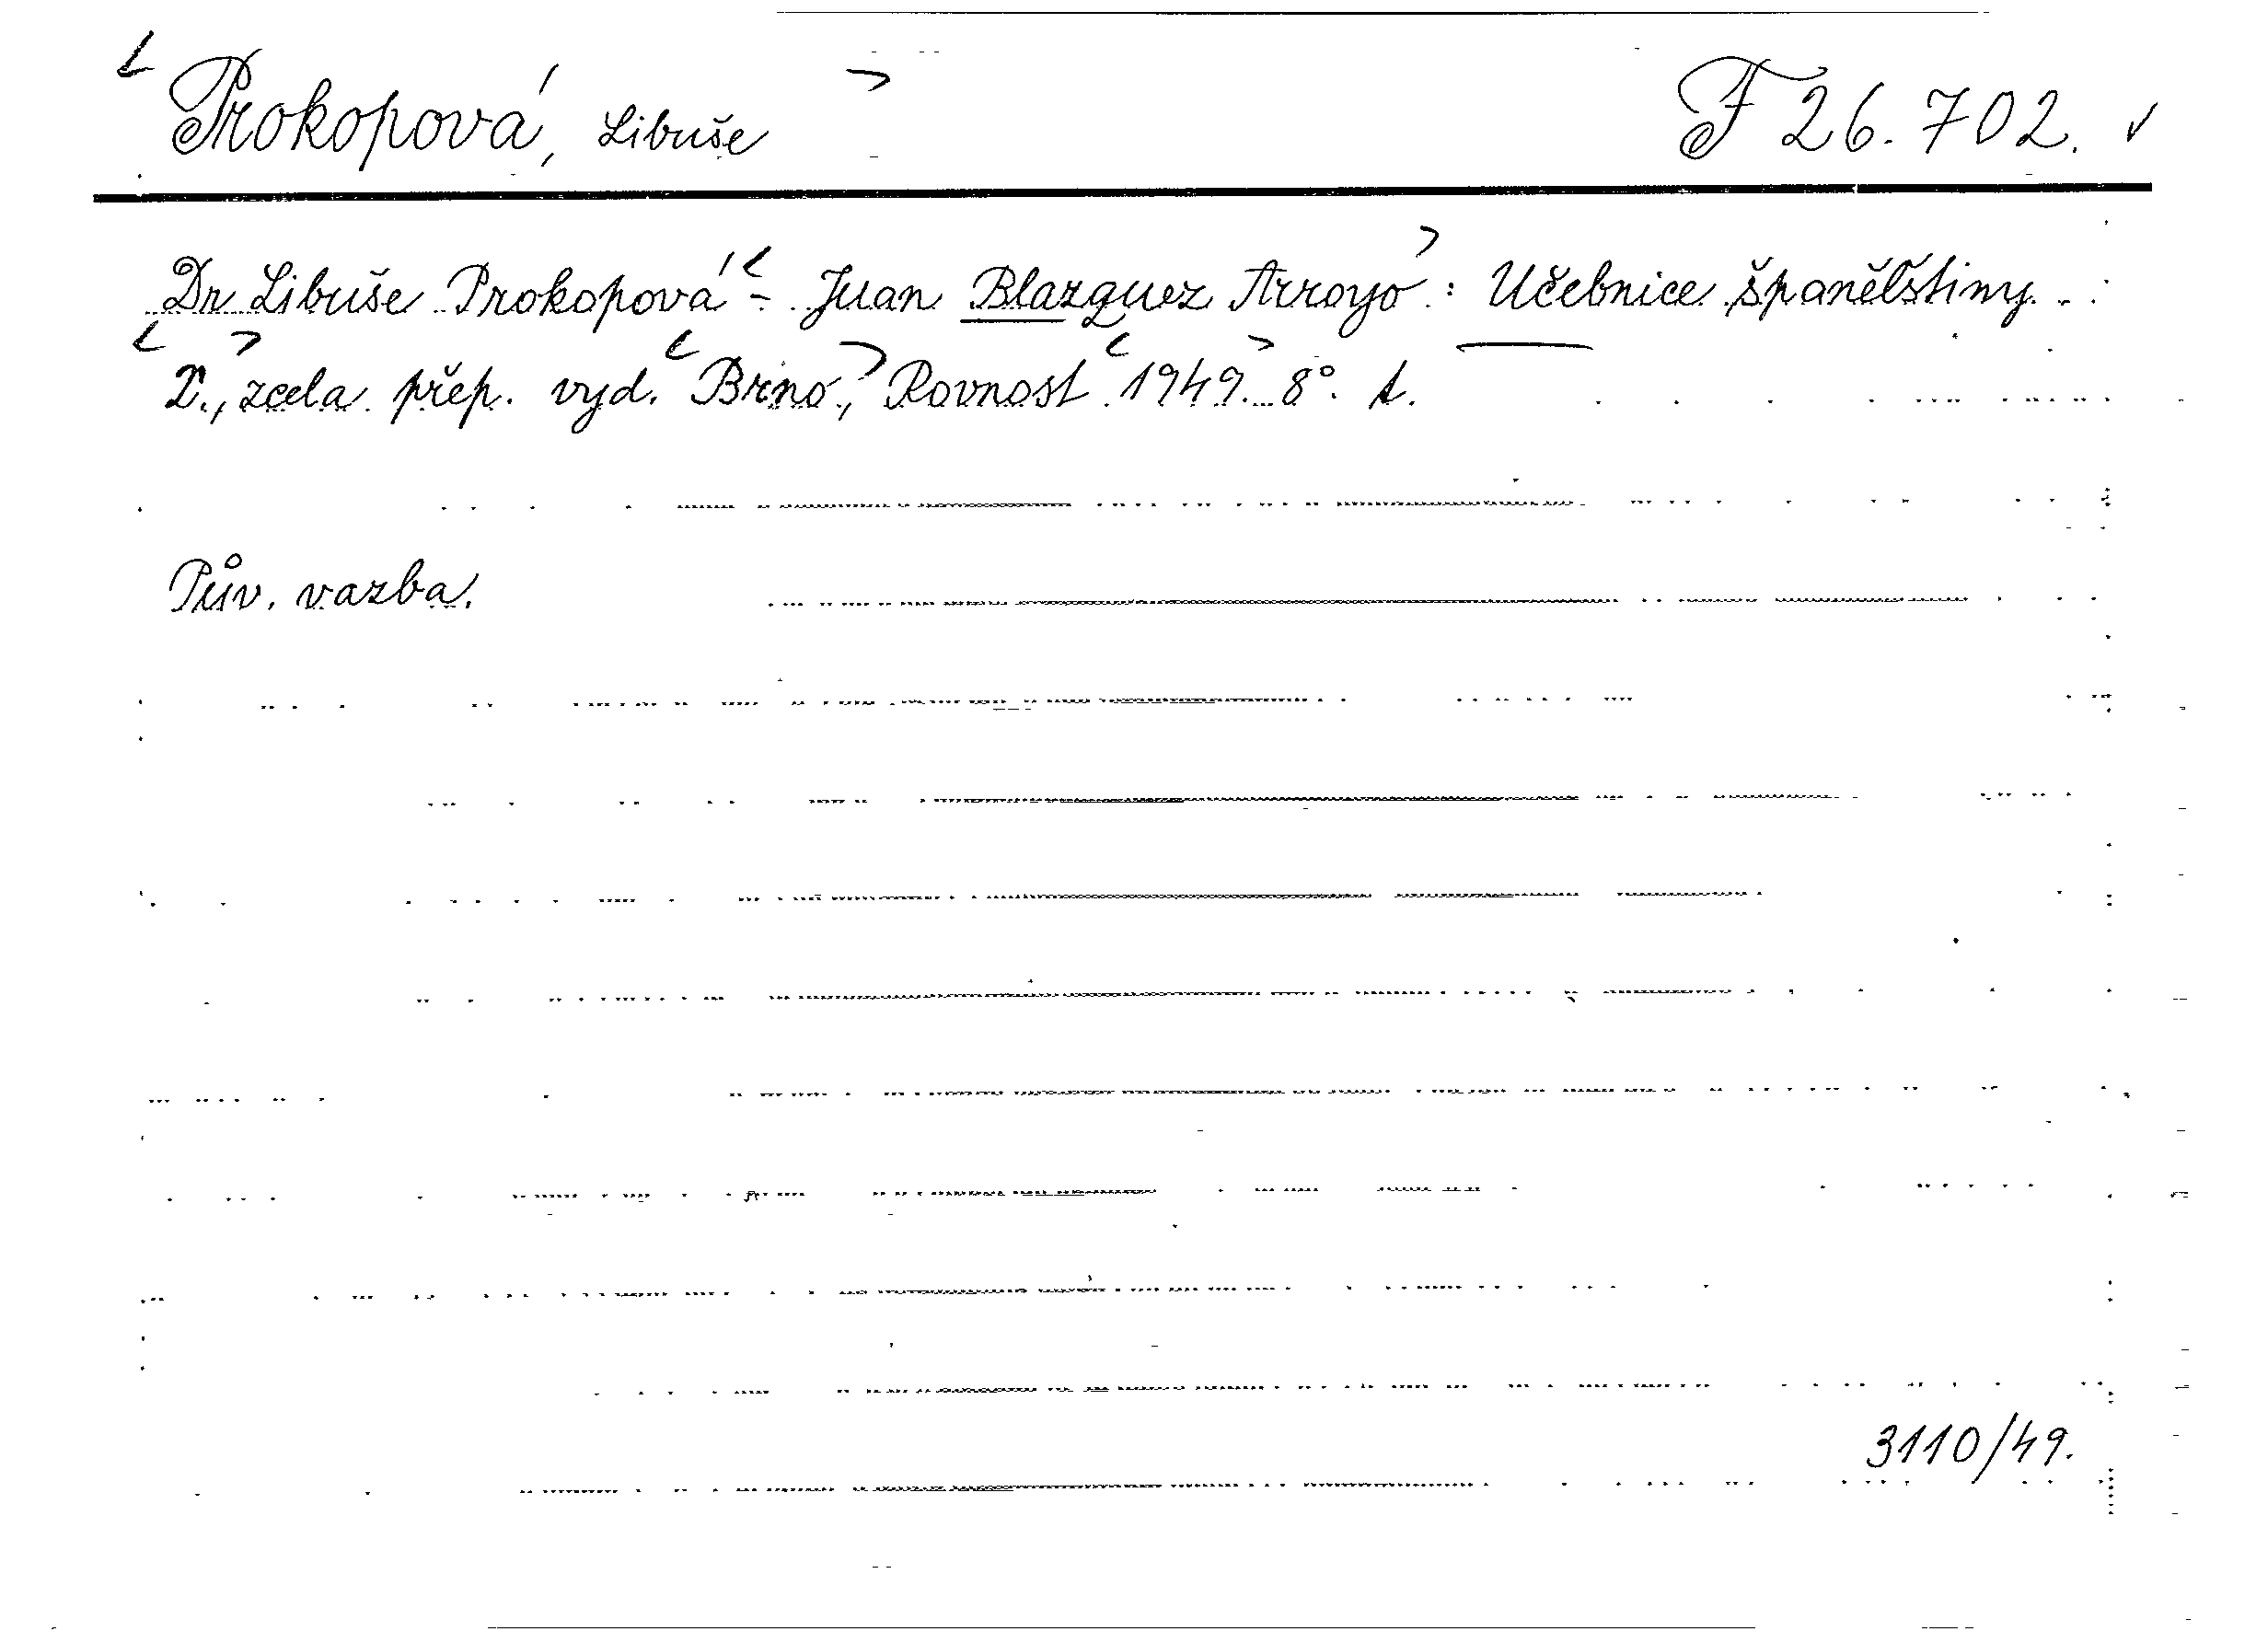 Prokopová, Libuše F 26.702.
Dr Libuše Prokopová - Juan Blazquez Arroyo: Učebnice španělštiny.
zcela přep. vyd. Brno, Rovnost 1949. 8°.
Pův. vazba.
3110/49.